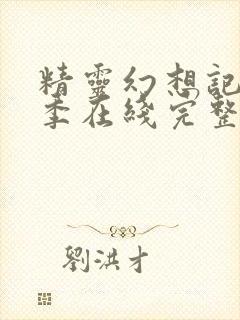 精靈幻想記
季在綫完整
劉洪才